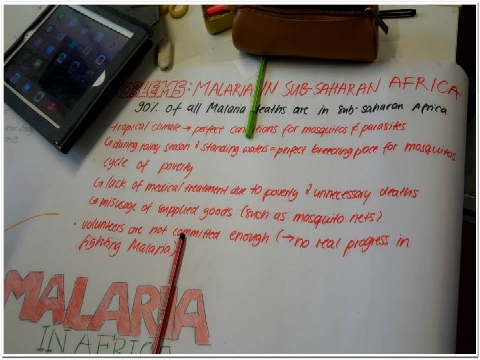 OBLEMS: MALARIA IN SUB-SAHARAN AFRICA
90% of all Malaria deaths are in sub-saharan Africa
· tropical climate → perfect conditions for mosquitos & parasites
↳ during rainy season & standing waters = perfect breeding place for mosquitos
· cycle of poverty
↳ lack of medical treatment due to poverty & unnecessary deaths
↳ misusage of supplied goods (such as mosquito nets)
· volunteers are not committed enough (→ no real progress in
fighting Malaria)
MALARIA
IN AFRICA